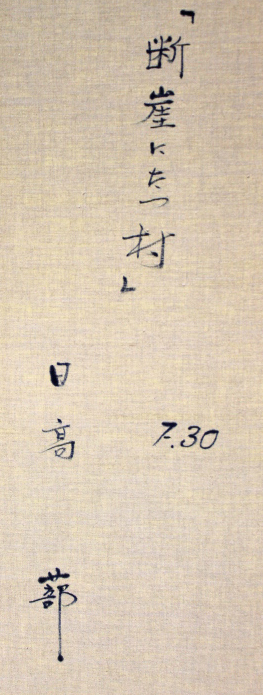 「断崖にたつ村」
F.30
日高
蔀